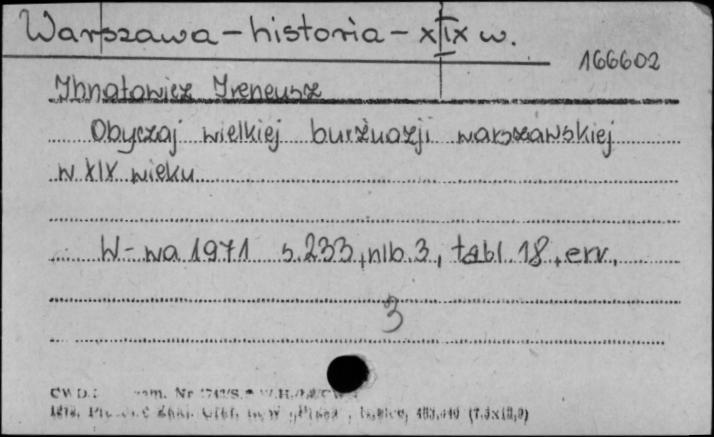 Warszawa - historia - XIX w.
166602
Ihnatowicz Ireneusz
Obyczaj wielkiej burżuazji warszawskiej
w XIX wieku
W-wa 1971 s. 233, nlb. 3, tabl. 18, err.
3
CWD. zam. Nr
(7,5x12,5)